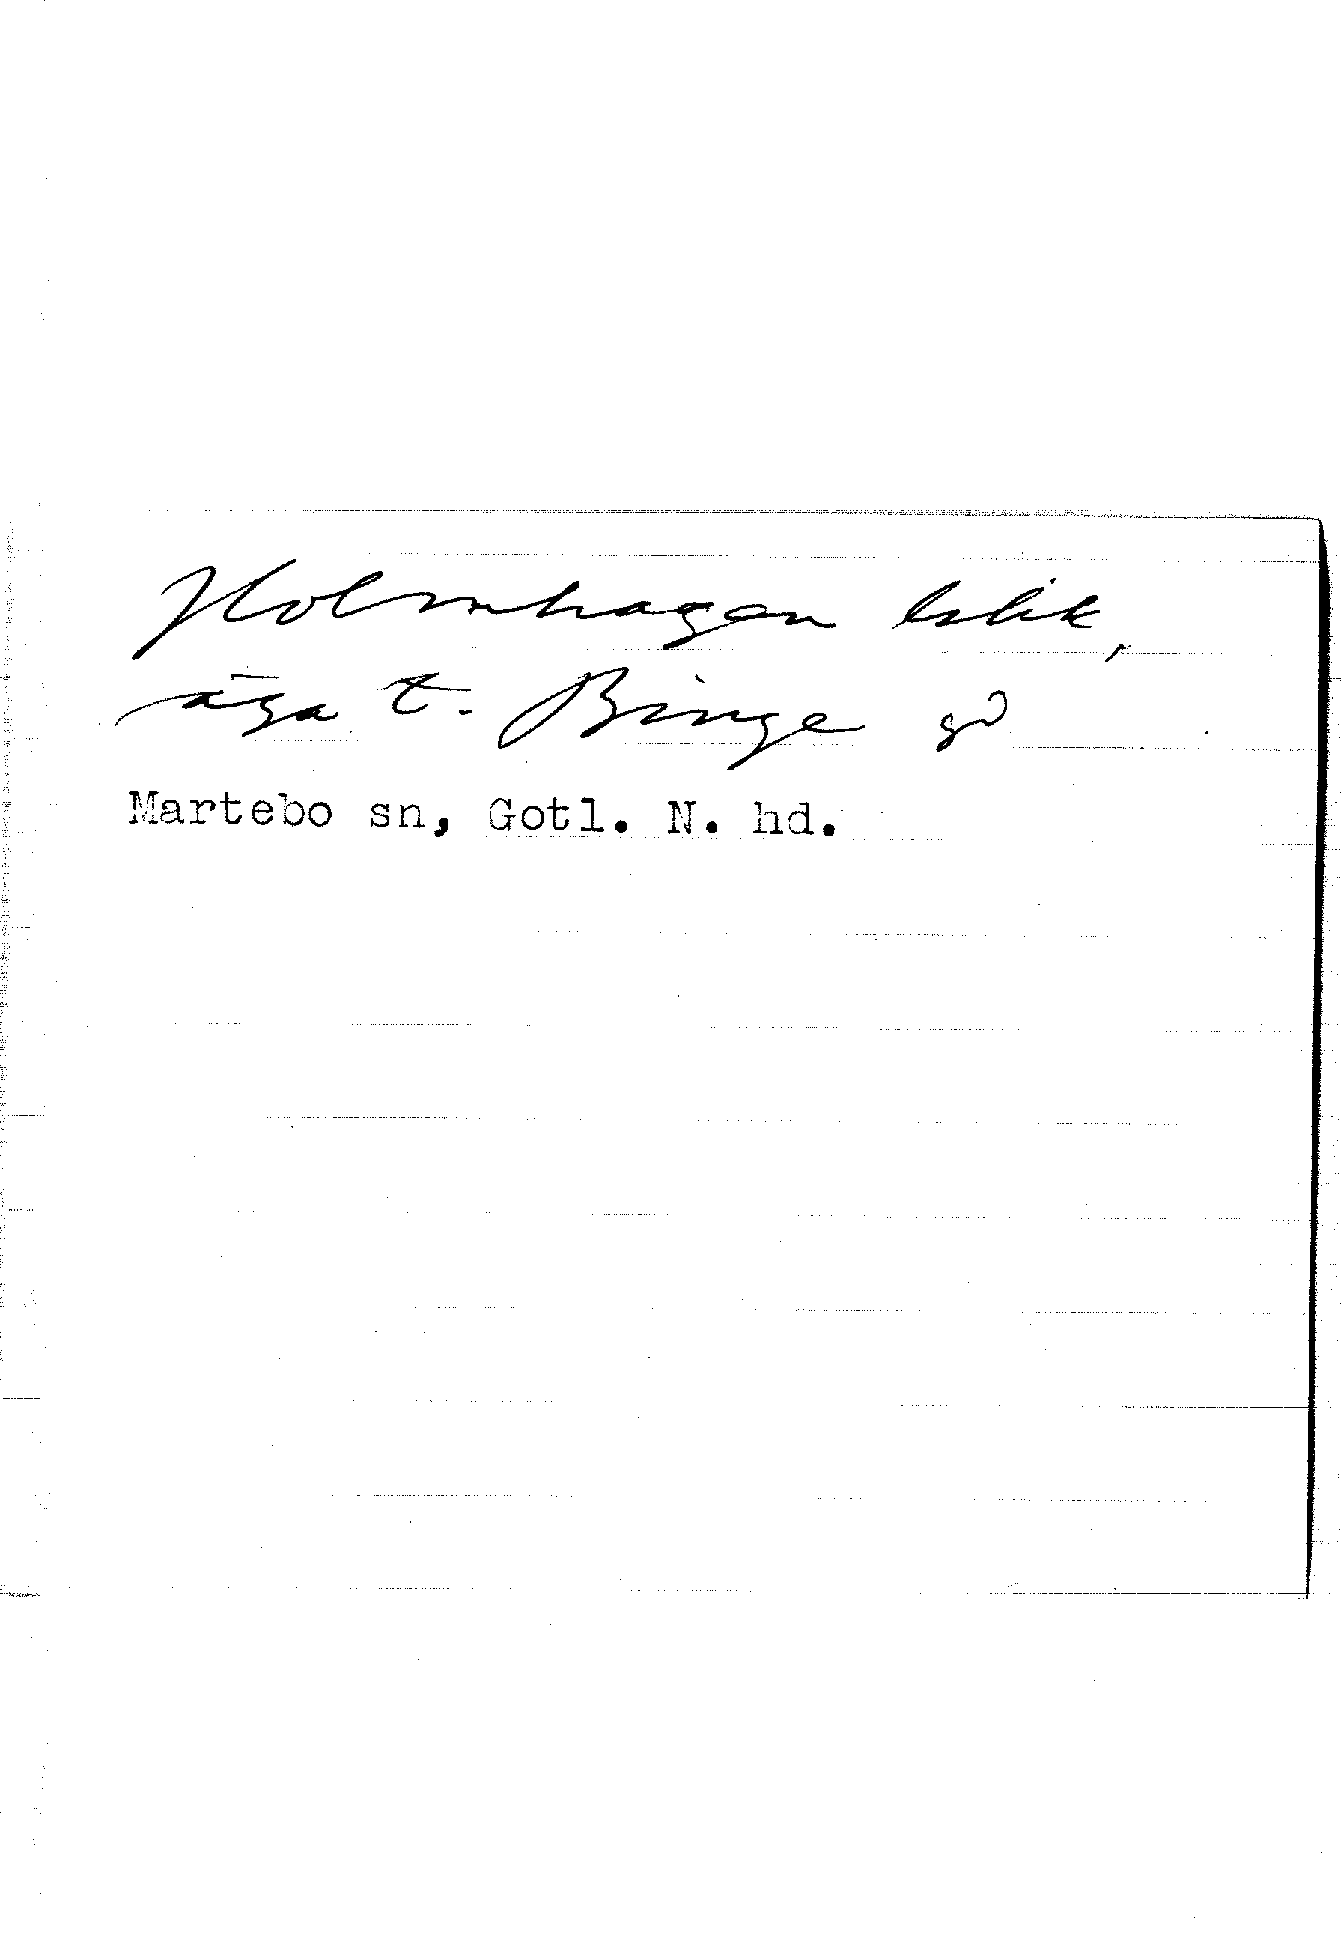 Holmhagen
äga t. Binge gd
Martebo sn, Gotl. N. hd.